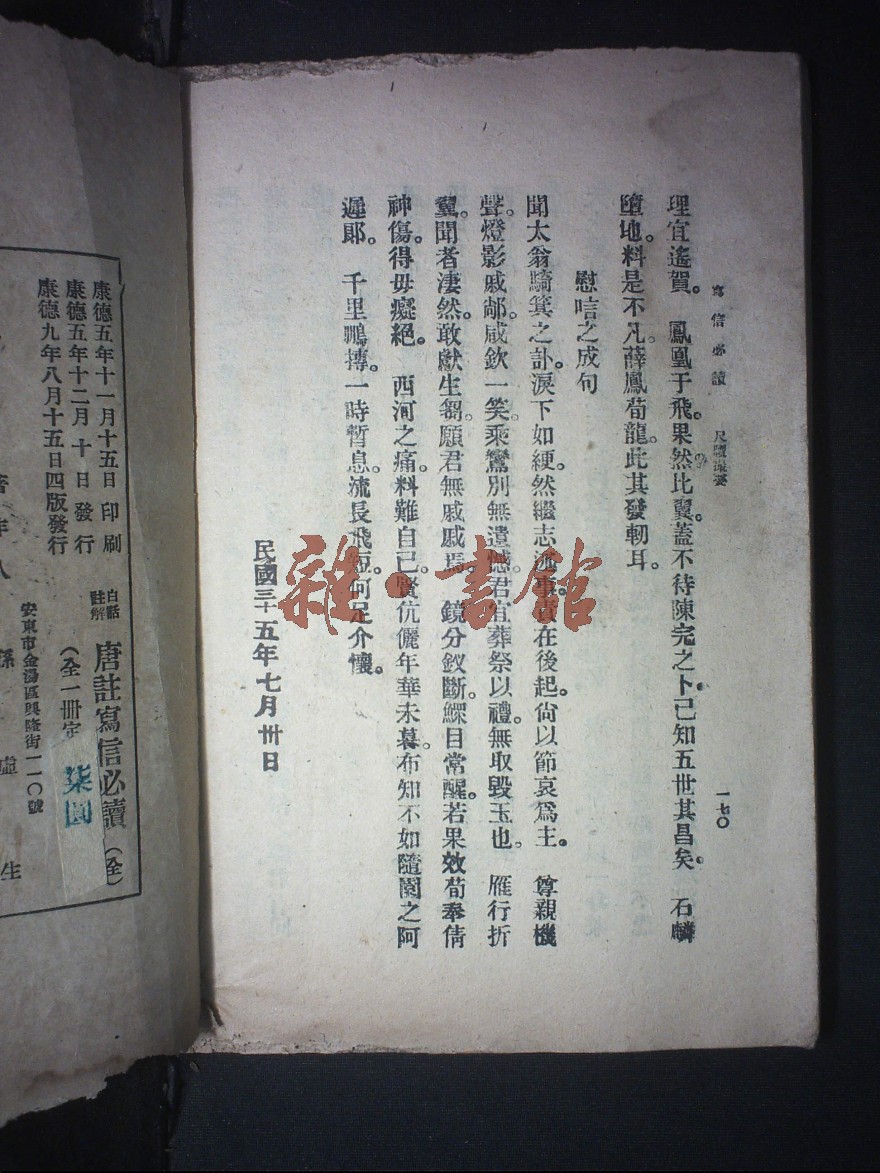 寫信必讀 尺牘菁華 一七〇
理宜遙賀。 鳳凰于飛。果然比翼。蓋不待陳完之卜。已知五世其昌矣。 石麟
墮地。料是不凡。薛鳳荀龍。此其發軔耳。
慰唁之成句
聞太翁騎箕之訃。淚下如綆。然繼志述事。責在後起。尙以節哀爲主。 尊親機
聲。燈影戚鄰。咸欽一笑。乘鸞別無遺憾。君宜葬祭以禮。無取毀玉也。 雁行折
翼。聞者淒然。敢獻生芻。願君無戚戚焉。 鏡分釵斷。鰥目常醒。若果效荀奉倩
神傷。得毋癡絕。 西河之痛。料難自已。賢伉儷年華未暮。布知不如隨園之阿
遲郞。 千里鵬摶。一時暫息。流長飛短。何足介懷。
民國三十五年七月卅日
雜·書館
康德五年十一月十五日印刷
康德五年十二月十日發行
康德九年八月十五日四版發行
安東市金湯區興隆街一一〇號
白話註解 唐註寫信必讀(全)
(全一冊定
柒圓
著作人
孫虛生